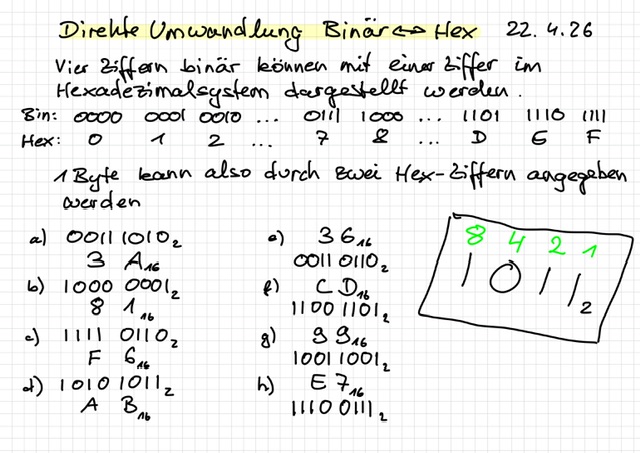 Direkte Umwandlung Binär ↔ Hex 22.4.26
Vier Ziffern binär können mit einer Ziffer im
Hexadezimalsystem dargestellt werden.
Bin: 0000 0001 0010 ... 0111 1000 ... 1101 1110 1111
Hex: 0 1 2 ... 7 8 ... D E F
1 Byte kann also durch zwei Hex-Ziffern angegeben
werden
a) 0011 1010₂
3 A₁₆
b) 1000 0001₂
8 1₁₆
c) 1111 0110₂
F 6₁₆
d) 1010 1011₂
A B₁₆
e) 3 6₁₆
0011 0110₂
f) C D₁₆
1100 1101₂
g) 9 9₁₆
1001 1001₂
h) E 7₁₆
1110 0111₂
8 4 2 1
1 0 1 1₂